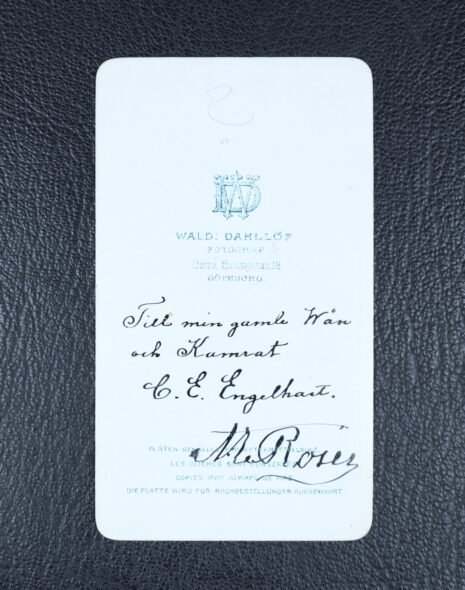 WD
WALD: DAHLLÖF
FOTOGRAF
Östra Hamngatan, 18
GÖTEBORG.
Till min gamle Wän
och Kamrat
C. E. Engelhart.
Rosén
PLÅTEN
LES CLICHÉS SONT
COPIES MAY ALWAYS BE HAD
DIE PLATTE WIRD FÜR NACHBESTELLUNGEN AUFBEWAHRT.